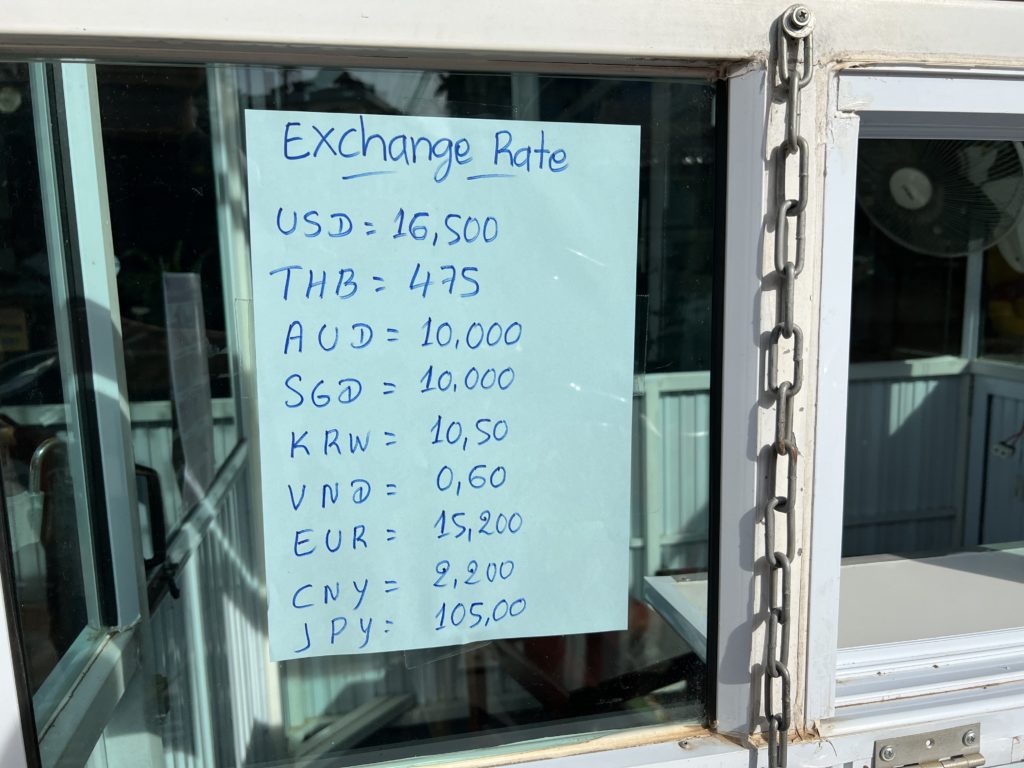 Exchange Rate
USD = 16,500
THB = 475
AUD = 10,000
SGD = 10,000
KRW = 10,50
VND = 0,60
EUR = 15,200
CNY = 2,200
JPY = 105,00